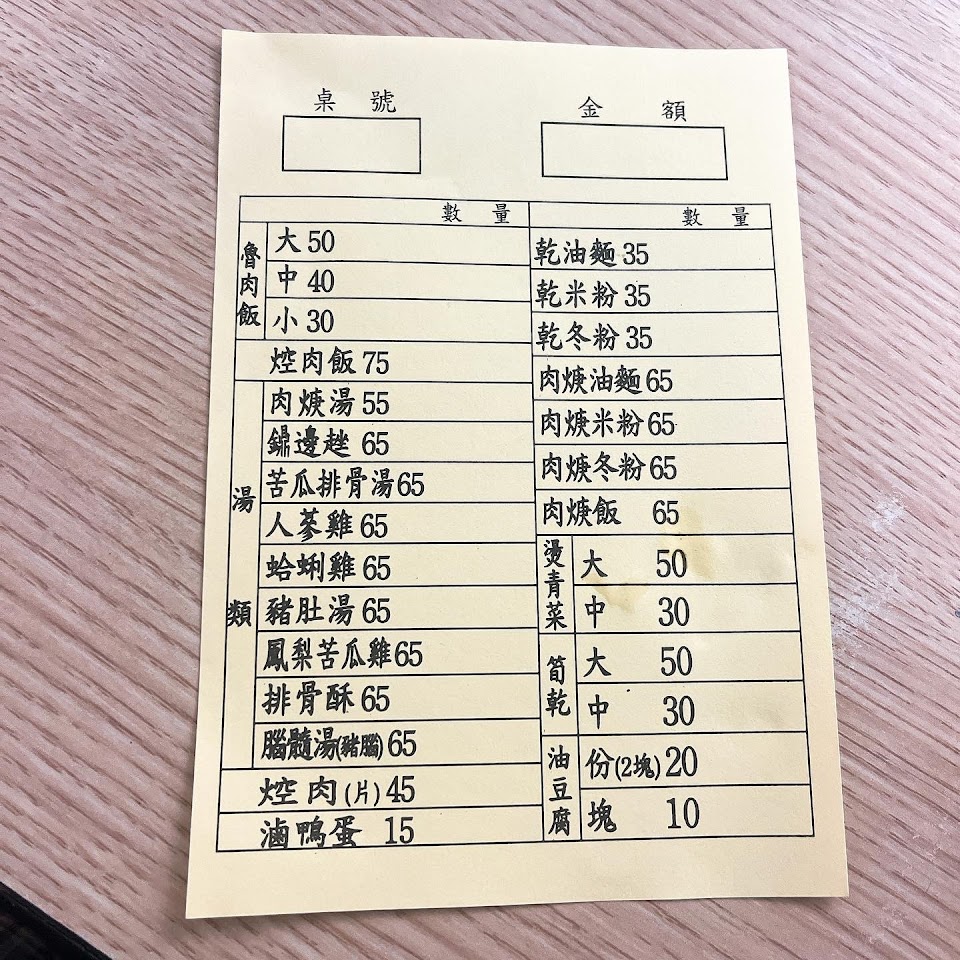 桌號
金額
數量
魯肉飯
大 50
中 40
小 30
焢肉飯 75
湯類
肉焿湯 55
鼎邊趖 65
苦瓜排骨湯 65
人蔘雞 65
蛤蜊雞 65
豬肚湯 65
鳳梨苦瓜雞 65
排骨酥 65
腦髓湯(豬腦) 65
焢肉(片) 45
滷鴨蛋 15
數量
乾油麵 35
乾米粉 35
乾冬粉 35
肉焿油麵 65
肉焿米粉 65
肉焿冬粉 65
肉焿飯 65
燙青菜
大 50
中 30
筍乾
大 50
中 30
油豆腐
份(2塊) 20
塊 10